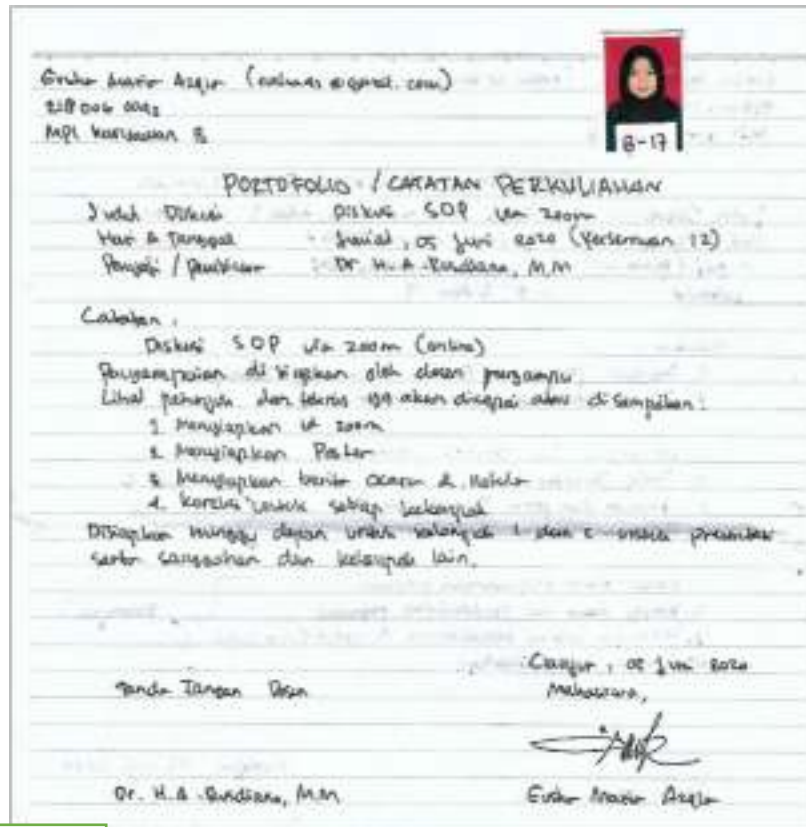 (@gmail.com)
218 006
MPI Karyawan B
B-17
PORTOFOLIO / CATATAN PERKULIAHAN
Judul Diskusi Diskusi SOP via zoom
Hari & Tanggal Jum'at, 05 Juni 2020 (Pertemuan 12)
Penyaji / Dr. H.A. Rusdiana, M.M
Catatan :
Diskusi SOP via zoom (online)
Penyampaian di siapkan oleh dosen pengampu
Lihat dan teknis yg akan dicapai atau di sampaikan :
1. Menyiapkan zoom
2. Menyiapkan Poster
3. Menyiapkan berita acara &
4. Koreksi untuk setiap kelompok
Disiapkan minggu depan untuk kelompok 1 dan 2 untuk
serta sanggahan dan kelompok lain.
Cianjur, 05 Juni 2020
Tanda Tangan Dosen Mahasiswa,
Dr. H.A. Rusdiana, M.M